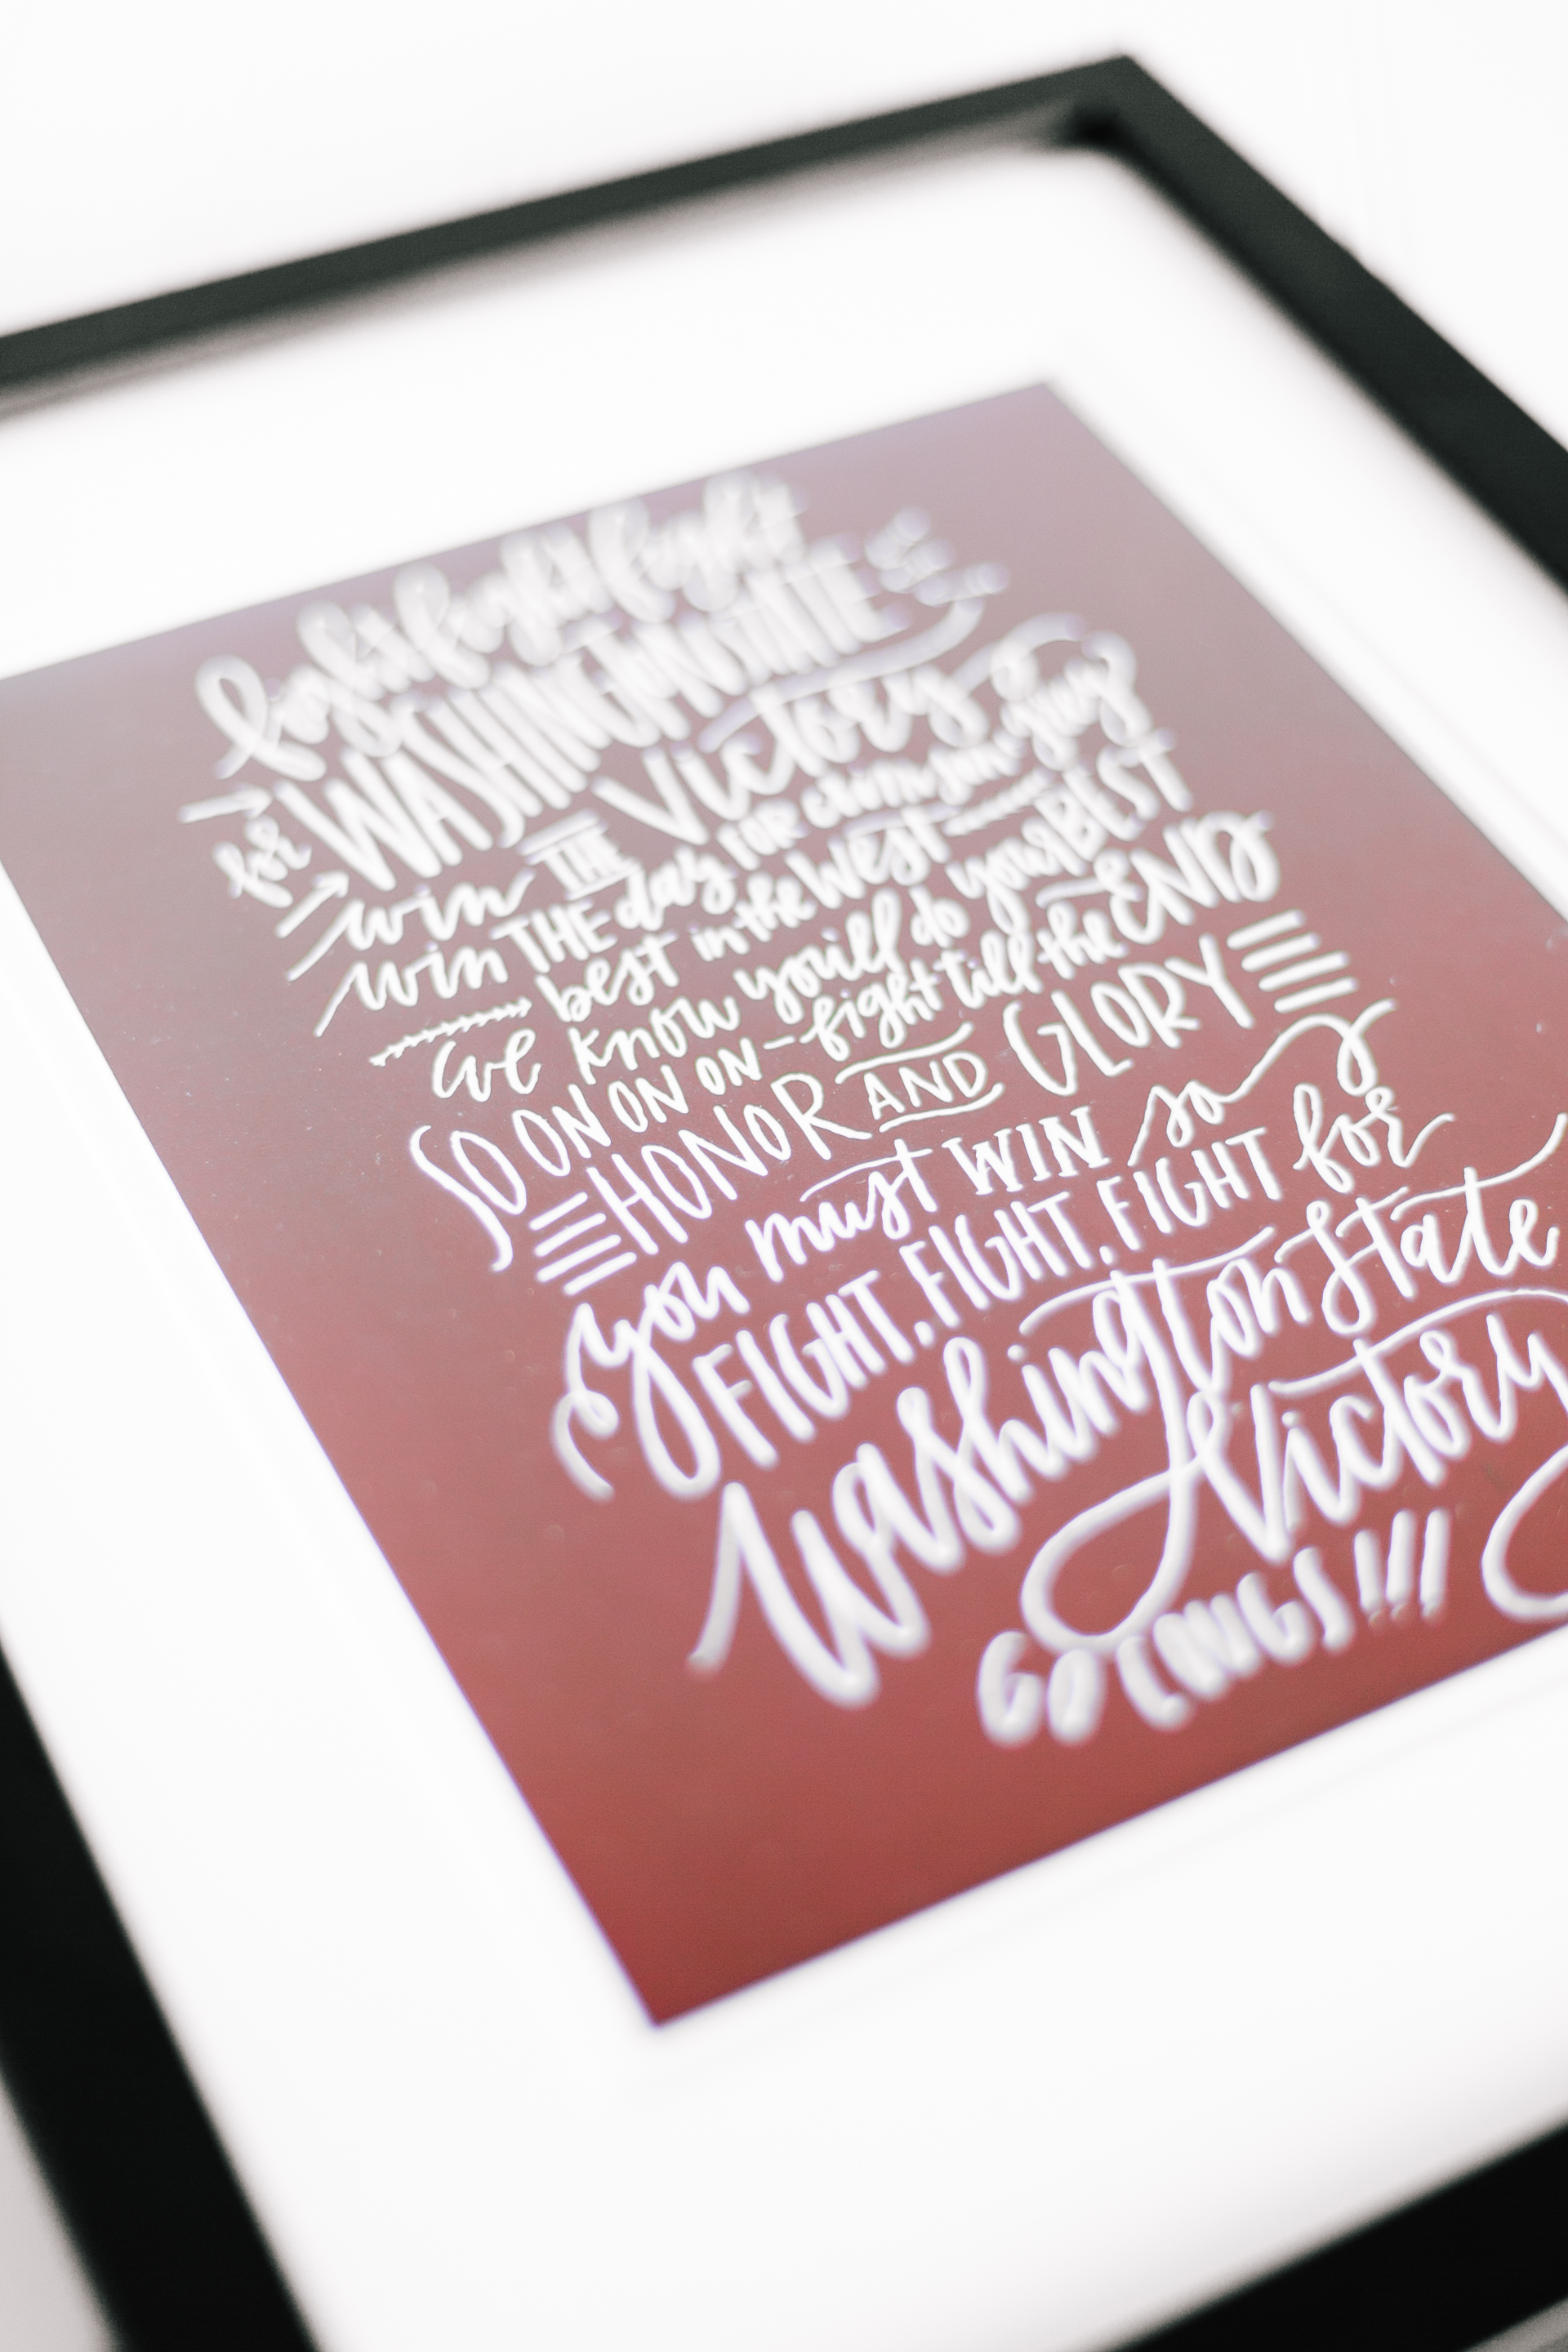 fight fight fight
for WASHINGTON STATE
win THE Victory
win THE day FOR crimson gray
best in the West
we know you'll do your BEST
SO ON ON ON - fight till the END
HONOR AND GLORY
you must WIN so
FIGHT, FIGHT, FIGHT for
Washington State
Victory
GO COUGS!!!